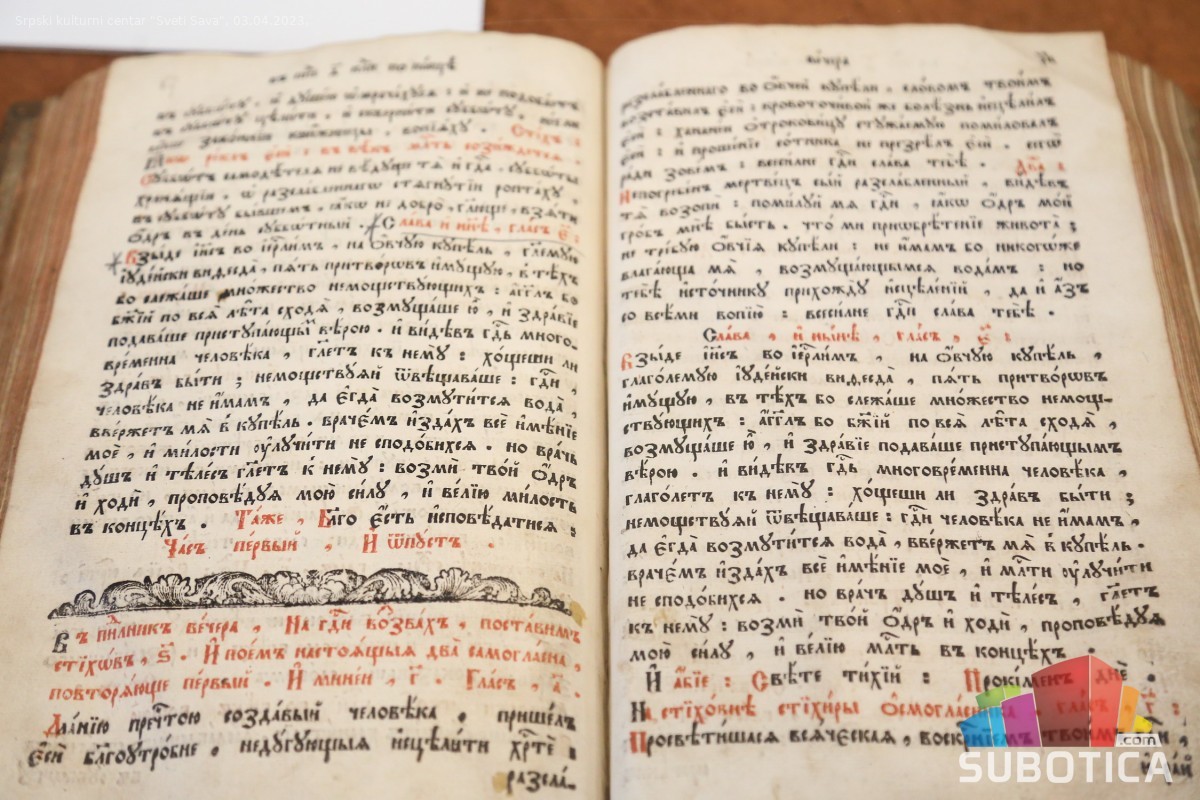 Srpski kulturni centar "Sveti Sava", 03.04.2023.
хранѧщїи, ѡ разслабленнагѡ стѧгнꙋтїи роптахꙋ,
въ сꙋбботꙋ бывшемъ, ꙗкѡ не добро, глюще, взѧти
ѻдръ въ день сꙋбботный. Слава и ннѣ, гласъ є҃:
Взыде і҆и҃съ во і҆ерⷭ҇лимъ, на ѻвчꙋю кꙋпѣль, гл҃емꙋю
і҆ꙋдейски виѳесда, пѧть притворѡвъ и҆мꙋщꙋю, в̾ тѣхъ
бо слежаше множество немощствꙋющихъ: а҆гг҃лъ бо
бж҃їй по всѧ лѣта сходѧ, возмꙋщаше ю҆̀, и҆ здравїе
подаваше пристꙋпающы҆мъ вѣрою. и҆ видѣвъ гд҇ь много-
временна человѣка, гл҃етъ к̾ немꙋ: хощеши ли
здравъ быти; немощствꙋѧй ѿвѣщаваше: гд҇и,
человѣка не и҆мамъ, да є҆гда возмꙋтитсѧ вода,
ввержетъ мѧ в̾ кꙋпѣль. врачемъ и҆здахъ все и҆мѣнїе
мое, и҆ милости ᲂулꙋчити не сподобихсѧ. но врачь
дꙋшъ и҆ тѣлесъ гл҃етъ к̾ немꙋ: возми твой ѻдръ
и҆ ходи, проповѣдꙋѧ мою силꙋ, и҆ велїю милость
въ концѣхъ. Таже, Бл҃го є҆сть и҆сповѣдатисѧ:
Часъ первый, И҆ ѿпꙋстъ.
Въ пнⷣлникъ вечера, На гд҇и воззвахъ, поставимъ
стїхѡвъ, ѕ҃. И҆ поемъ настоѧщыѧ два самогласна,
повторѧюще первый. И҆ минеи, г҃. Гласъ, а҃.
Дланїю пречⷭ҇тою создавый человѣка, пришелъ
є҆си бл҃гоꙋтробне, недꙋгꙋющыѧ и҆сцелити хрⷭ҇те:
разсла-
вечера
разслабленнаго во ѻвчїй кꙋпѣли, словомъ твоимъ
возставилъ є҆си: кровоточивой же болѣзнь и҆сцелилъ
є҆си: ханании ѻтроковицꙋ стꙋжаемꙋю помиловалъ
є҆си: и҆ прошенїе сотника не презрѣлъ є҆си. сегѡ
ради зовемъ: всесилне гд҇и слава тебѣ. Два:
Непогребенъ мертвецъ сый разслабленный, видѣвъ
тѧ возопи: помилꙋй мѧ гд҇и, ꙗкѡ ѻдръ мой
гробъ мнѣ бысть. что ми приѡбрѣтенїе живота;
не требꙋю ѻвчїѧ кꙋпѣли: не и҆мамъ бо никогѡже
влагающа мѧ, возмꙋщающымсѧ водамъ: но
тебѣ и҆сточникꙋ прихождꙋ и҆сцеленїй, да и҆ азъ
со всѣми вопїю: всесилне гд҇и слава тебѣ.
Слава, и҆ нынѣ, гласъ, є҃:
Взыде і҆и҃съ во і҆ерⷭ҇лимъ, на ѻвчꙋю кꙋпѣль,
глаголемꙋю і҆ꙋдейски виѳесда, пѧть притворѡвъ
и҆мꙋщꙋю, въ тѣхъ бо слежаше множество немощ-
ствꙋющихъ: а҆гг҃лъ бо бж҃їй по всѧ лѣта сходѧ,
возмꙋщаше ю҆̀, и҆ здравїе подаваше пристꙋпающымъ
вѣрою. и҆ видѣвъ гд҇ь многовременна человѣка,
глаголетъ к̾ немꙋ: хощеши ли здравъ быти;
немощствꙋѧй ѿвѣщаваше: гд҇и человѣка не и҆мамъ,
да є҆гда возмꙋтитсѧ вода, ввержетъ мѧ в̾ кꙋпѣль.
врачемъ и҆здахъ все и҆мѣнїе мое, и҆ млⷭ҇ти ᲂулꙋчити
не сподобихсѧ. но врачъ дꙋшъ и҆ тѣлесъ, гл҃етъ
къ немꙋ: возми твой ѻдръ и҆ ходи, проповѣдꙋѧ
мою силꙋ, и҆ велїю млⷭ҇ть въ концѣхъ.
И҆ абїе: Свѣте тихїй: Прокіменъ дне.
На стїховнѣ стїхиры ѻсмогласника, гласъ, г҃:
Просвѣтишасѧ всѧческаѧ, воскрⷭ҇нїемъ твоимъ гд҇и,
.com
SUBOTICA